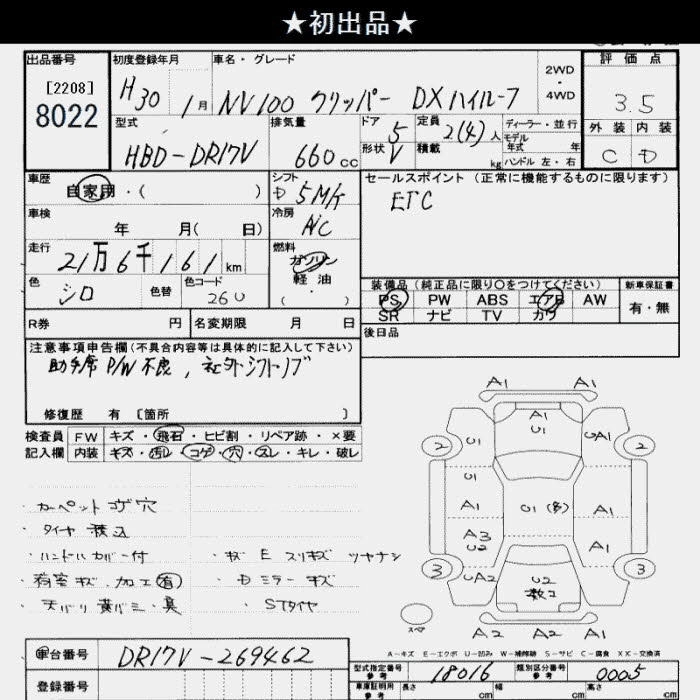 ★初出品★
出品番号 初度登録年月 車名・グレード 2WD・4WD 評価点
[2208]
8022
H30 1月 NV100 クリッパー DXハイルーフ 3.5
型式 排気量 ドア 定員 ディーラー・並行 外装 内装
HBD-DR17V 660cc 5 2(4)人 モデル年式 年 C D
形状 V 積載 kg ハンドル 左・右
車歴 シフト セールスポイント (正常に機能するものに限ります)
自家用・( ) D 5 M/K ETC
車検 冷房
年 月( 日) A/C
走行 燃料
21万6千161km ガソリン
軽油
( )
色 色替 色コード 装備品(純正品に限り○をつけてください) 新車保証書
シロ 260 PS PW ABS エアB AW 有・無
SR ナビ TV カワ
R券 円 名変期限 月 日 後日品
注意事項申告欄(不具合内容等は具体的に記入して下さい)
助手席 P/W不良, 社外シフトノブ
修復歴 有 [箇所 ]
検査員 FW キズ・飛石・ヒビ割・リペア跡・×要
記入欄 内装 キズ・汚レ・コゲ・穴・スレ・キレ・破レ
・カーペット コゲ穴
・タイヤ 積込
・ハンドルカバー付 ・キズ E スリキズ ツヤナシ
・荷室キズ、加工(有) ・Dミラーキズ
・天バリ ・STタイヤ
A1 A1
A1
U1 U1 UA1
2 2
U1
A1 U1(多) A1
A3
U2 A1
3 3
UA2 U2
数コ
スペア
A2 A2 A1
A-キズ E-エクボ U-凹み W-補修跡 S-サビ C-腐食 XX-交換済
車台番号 DR17V-269462 型式指定番号 参考 18016 類別区分番号 参考 0005
登録番号 車庫証明用 参考 長さ cm 幅 cm 高さ cm